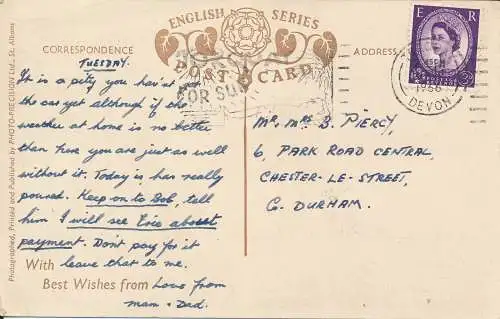 ENGLISH SERIES
POST CARD
CORRESPONDENCE
ADDRESS
E R
TORQUAY
FOR SUN
1956
DEVON
TUESDAY.
It is a pity you han't got
the car yet although if the
weather at home is no better
than here you are just as well
without it. Today is has really
poured. Keep on to Bob, tell
him I will see Eric about
payment. Don't pay for it
With leave that to me.
Best Wishes from Love from
mam & Dad.
Mr. Mrs B. PIERCY,
6, PARK ROAD CENTRAL,
CHESTER-LE-STREET,
Co. DURHAM.
Photographed, Printed and Published by PHOTO-PRECISION Ltd., St. Albans